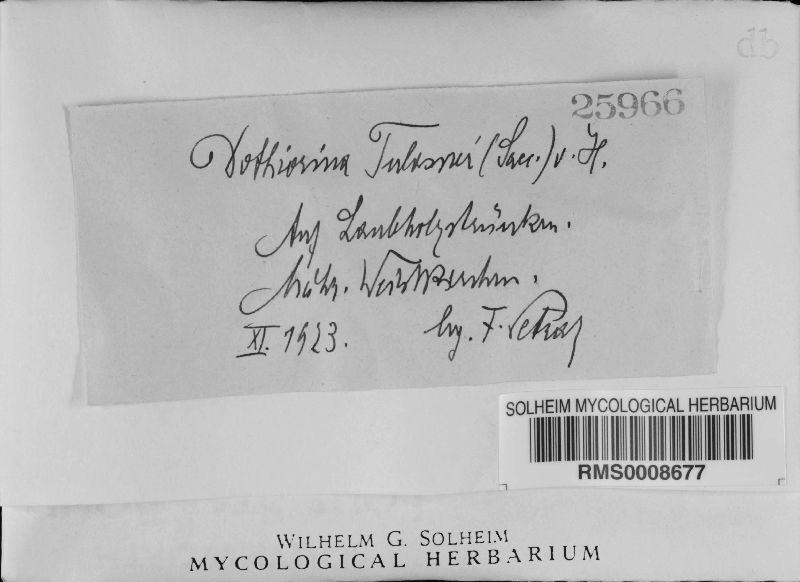 db
25966
Dothiorina Tulasnei (Sacc.) v. H.
Auf Laubholzstrünken.
Mähr. Weisskirchen.
XI. 1923. leg. F. Petrak
SOLHEIM MYCOLOGICAL HERBARIUM
RMS0008677
WILHELM G. SOLHEIM
MYCOLOGICAL HERBARIUM